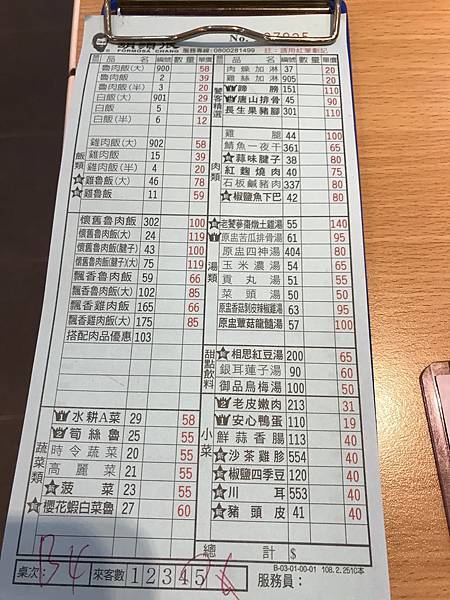 鬍鬚張
FORMOSA CHANG
No. 27925
服務專線:0800281499 註:請用紅筆劃記
品名 編號 數量 單價 品名 編號 數量 單價
飯類
魯肉飯(大) 900 58
魯肉飯 2 39
魯肉飯(半) 3 20
白飯(大) 901 29
白飯 5 20
白飯(半) 6 12
雞肉飯(大) 902 58
雞肉飯 15 39
雞肉飯(半) 4 20
雞魯飯(大) 46 78
雞魯飯 11 59
懷舊魯肉飯 302 100
懷舊魯肉飯(大) 24 119
懷舊魯肉飯(腱子) 43 100
懷舊魯肉飯(腱子)(大) 75 119
飄香魯肉飯 59 66
飄香魯肉飯(大) 102 85
飄香雞肉飯 165 66
飄香雞肉飯(大) 175 85
搭配肉品優惠 103
蔬菜類
水耕A菜 29 58
筍絲魯 25 55
時令蔬菜 20 55
高麗菜 21 55
菠菜 23 55
櫻花蝦白菜魯 27 60
饕客精選
肉燥加淋 37 20
雞絲加淋 905 20
蹄膀 151 110
唐山排骨 45 90
長生果豬腳 301 110
肉類
雞腿 44 100
鯖魚一夜干 361 65
蒜味腱子 38 80
紅麴燒肉 40 75
石板鹹豬肉 337 80
椒鹽魚下巴 42 80
湯類
老饕蔘棗燉土雞湯 55 140
原盅苦瓜排骨湯 61 95
原盅四神湯 404 80
玉米濃湯 54 65
貢丸湯 51 55
菜頭湯 50 55
原盅香菇剝皮辣椒雞湯 63 95
原盅蕈菇龍髓湯 57 100
甜點飲料
相思紅豆湯 200 65
銀耳蓮子湯 90 60
御品烏梅湯 100 50
小菜
老皮嫩肉 213 31
安心鴨蛋 110 19
鮮蒜香腸 113 40
沙茶雞胗 554 40
椒鹽四季豆 120 40
川耳 553 40
豬頭皮 41 40
總計 $
B-03-01-00-01 108.2.251C本
桌次: B4 來客數 1 2 3 4 5 服務員: